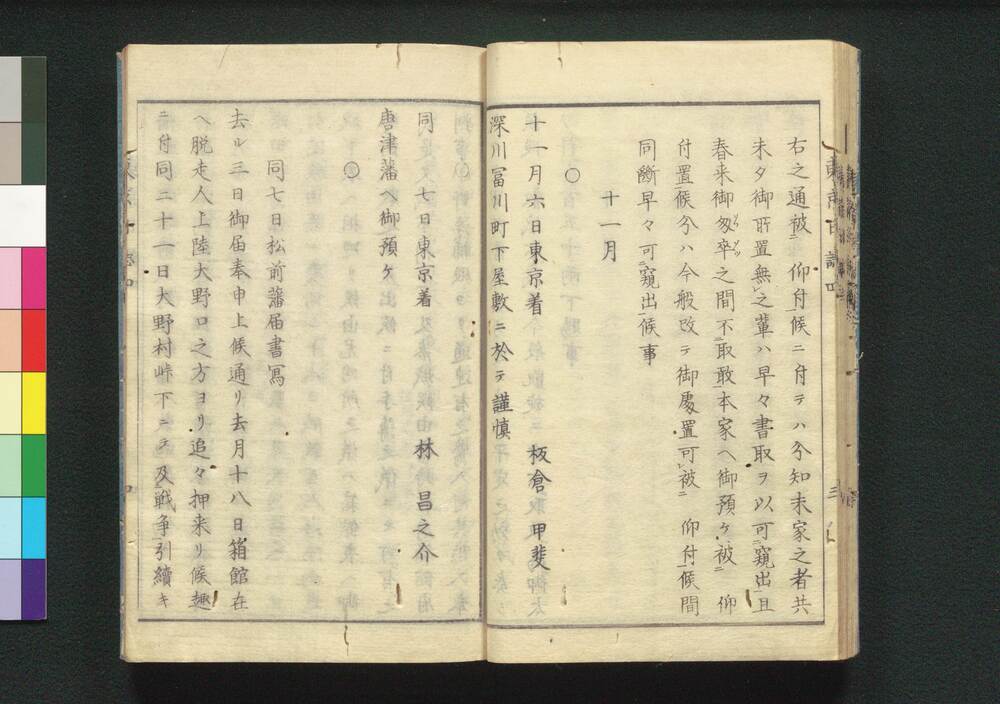 右之通被 仰付候ニ付テハ分知末家之者共
未タ御所置無之輩ハ早々書取ヲ以可窺出且
春来御怱卒之間不取敢本家ヘ御預ケ被 仰
付置候分ハ今般改テ御處置可被 仰付候間
同断早々可窺出候事
十一月
○
十一月六日東京着 板倉甲斐
深川冨川町下屋敷ニ於テ謹慎
同 七日東京着 林昌之介
唐津藩ヘ御預ケ
○
同七日松前藩届書寫
去ル三日御届奉申上候通リ去月十八日箱館在
ヘ脱走人上陸大野口之方ヨリ追々押来リ候趣
ニ付同二十一日大野村峠下ニテ及戦争引續キ